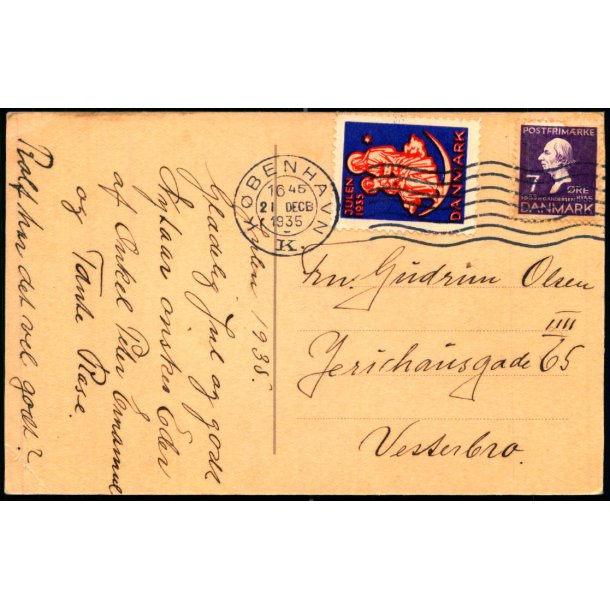 Julen 1935.
Glædelig Jul og godt
Nytaar ønskes Eder
af Onkel Peter Emanuel
og Tante Rose.
Rolf har det vel godt?
KØBENHAVN
16 45
21 DECB
1935
K.
JULEN
1935
DANMARK
POSTFRIMÆRKE
7 ØRE
1835 H.C.ANDERSEN 1935
DANMARK
Frn. Gudrun Olsen
Jerichausgade 65 IIII
Vesterbro.